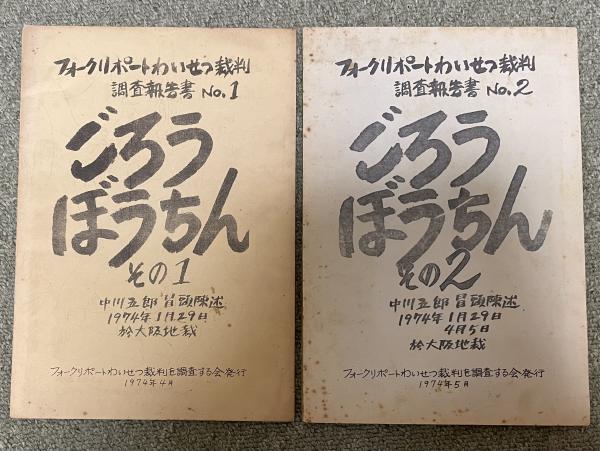 フォークリポートわいせつ裁判
調査報告書 No.1
ごろう
ぼうちん
その1
中川五郎 冒頭陳述
1974年 1月29日
於大阪地裁
フォークリポートわいせつ裁判を調査する会・発行
1974年4月
フォークリポートわいせつ裁判
調査報告書 No.2
ごろう
ぼうちん
その2
中川五郎 冒頭陳述
1974年 1月29日
4月5日
於大阪地裁
フォークリポートわいせつ裁判を調査する会・発行
1974年5月